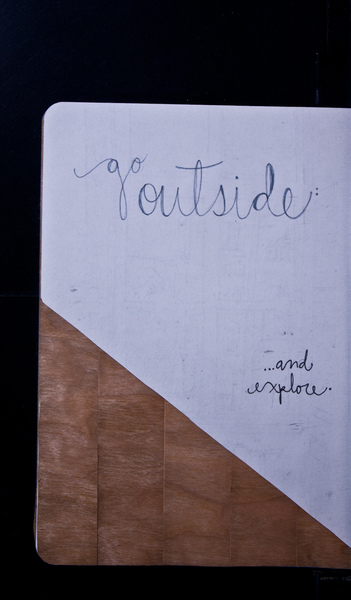 go outside:
...and
explore.